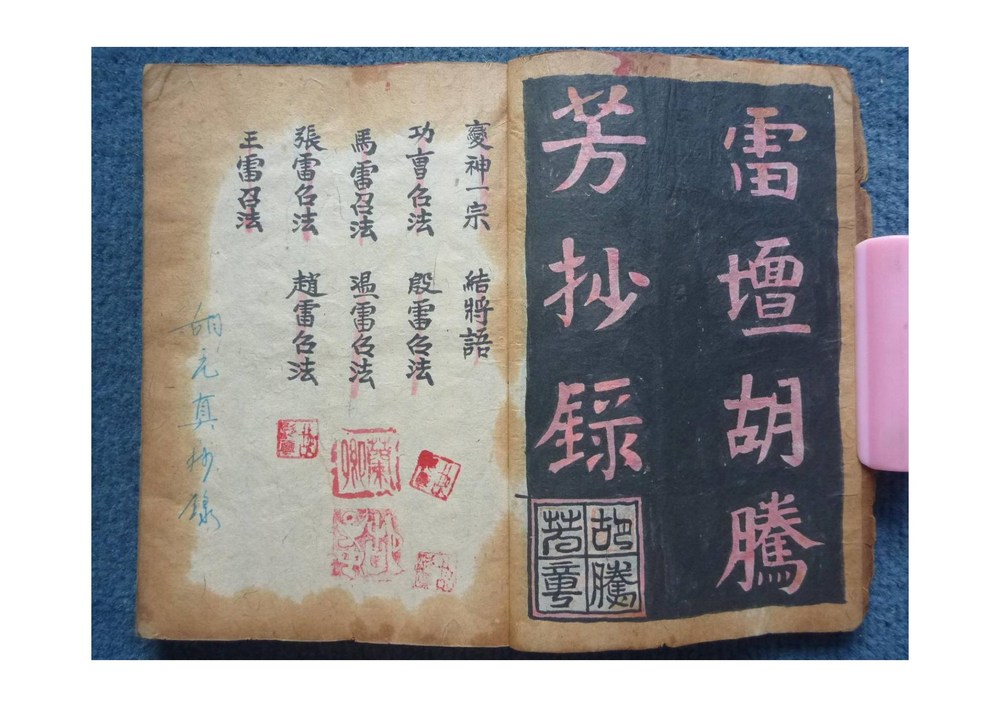 雷壇胡騰
芳抄錄
胡騰
芳章
變神一宗 結將語
功曹召法 殷雷召法
馬雷召法 温雷召法
張雷召法 趙雷召法
王雷召法
胡元真抄錄
蘭
卿